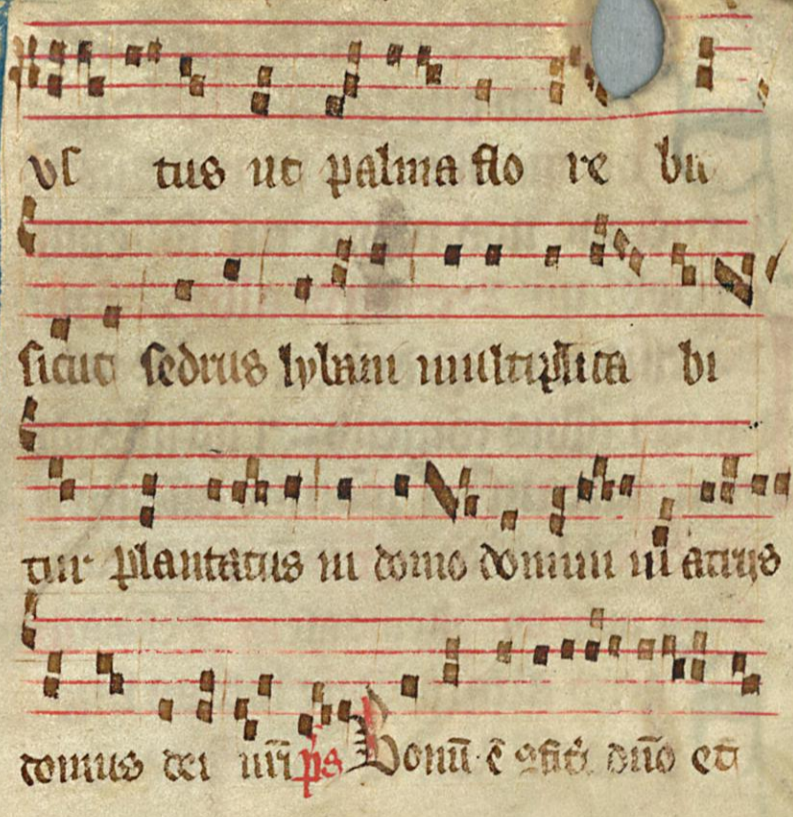 us tus ut palma flo re bit
sicut sedrus lybani multiplica bi
tur plantatus in domo domini in atrijs
domus dei nr̄i p̄s Bonū ē ꝯfit̄i dn̄o et